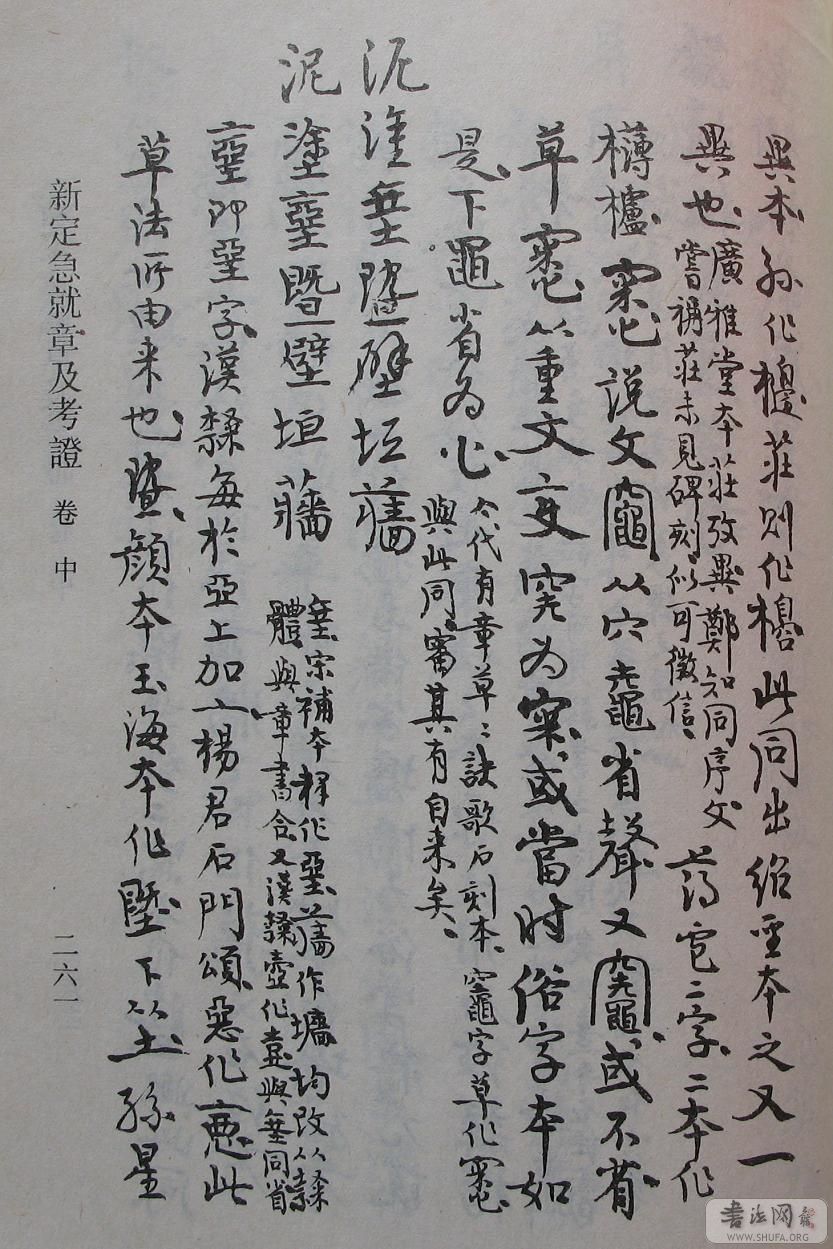 異本孫作櫋莊則作檐此同出紹聖本之又一
異也廣雅堂本莊攷異鄭知同序文
嘗稱莊未見碑刻似可徵信
薄鼀二字二本作
欂櫨竈說文竈从穴鼀省聲又竈或不省
草竈以重文变究為寀或當时俗字本如
是下黽省為心
今代有章草草訣歌石刻本竈字草作竈
與此同審其有自来矣
泥塗堊塈壁垣蘠
泥塗堊塈壁垣蘠
堊宋補本釋作堊蘠作墻均改从隸
體與章書合又漢隸壺作壺與堊同省
堊即堊字漢隸每於亞上加亠楊君石門頌惡作惡此
草法所由来也塈顏本玉海本作塈下从土孫星
新定急就章及考證 卷中
二六一
書法网
WWW.SHUFA.ORG